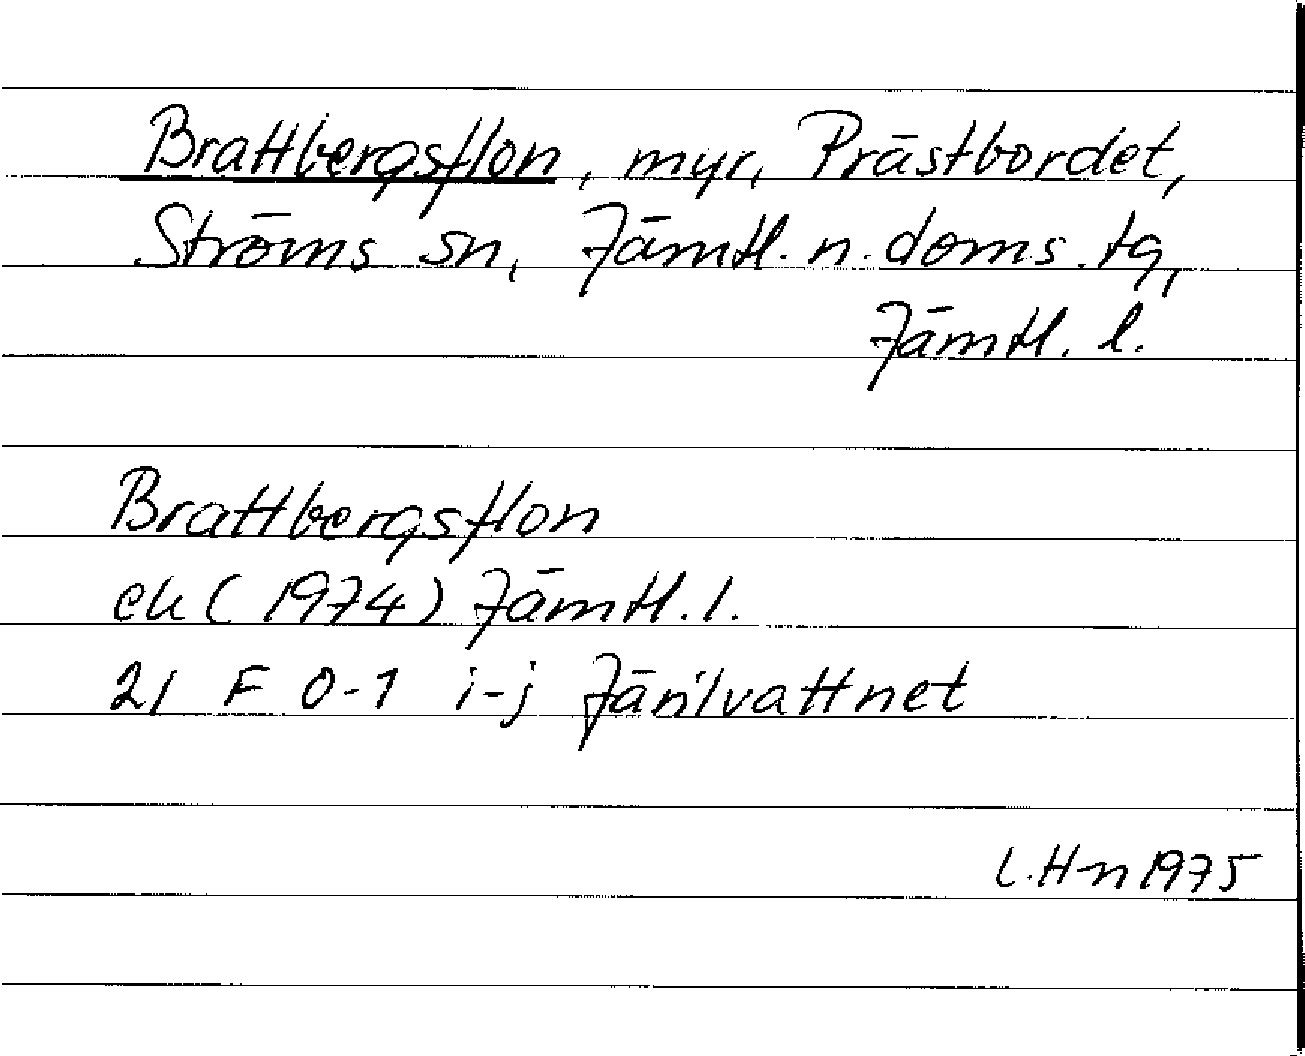 Brattbergsflon, myr, Prästbordet,
Ströms sn, Jämtl. n. doms. tg,
Jämtl. l.
Brattbergsflon
ek (1974) Jämtl. l.
21 F 0-1 i-j Järilvattnet
L. H-n 1975